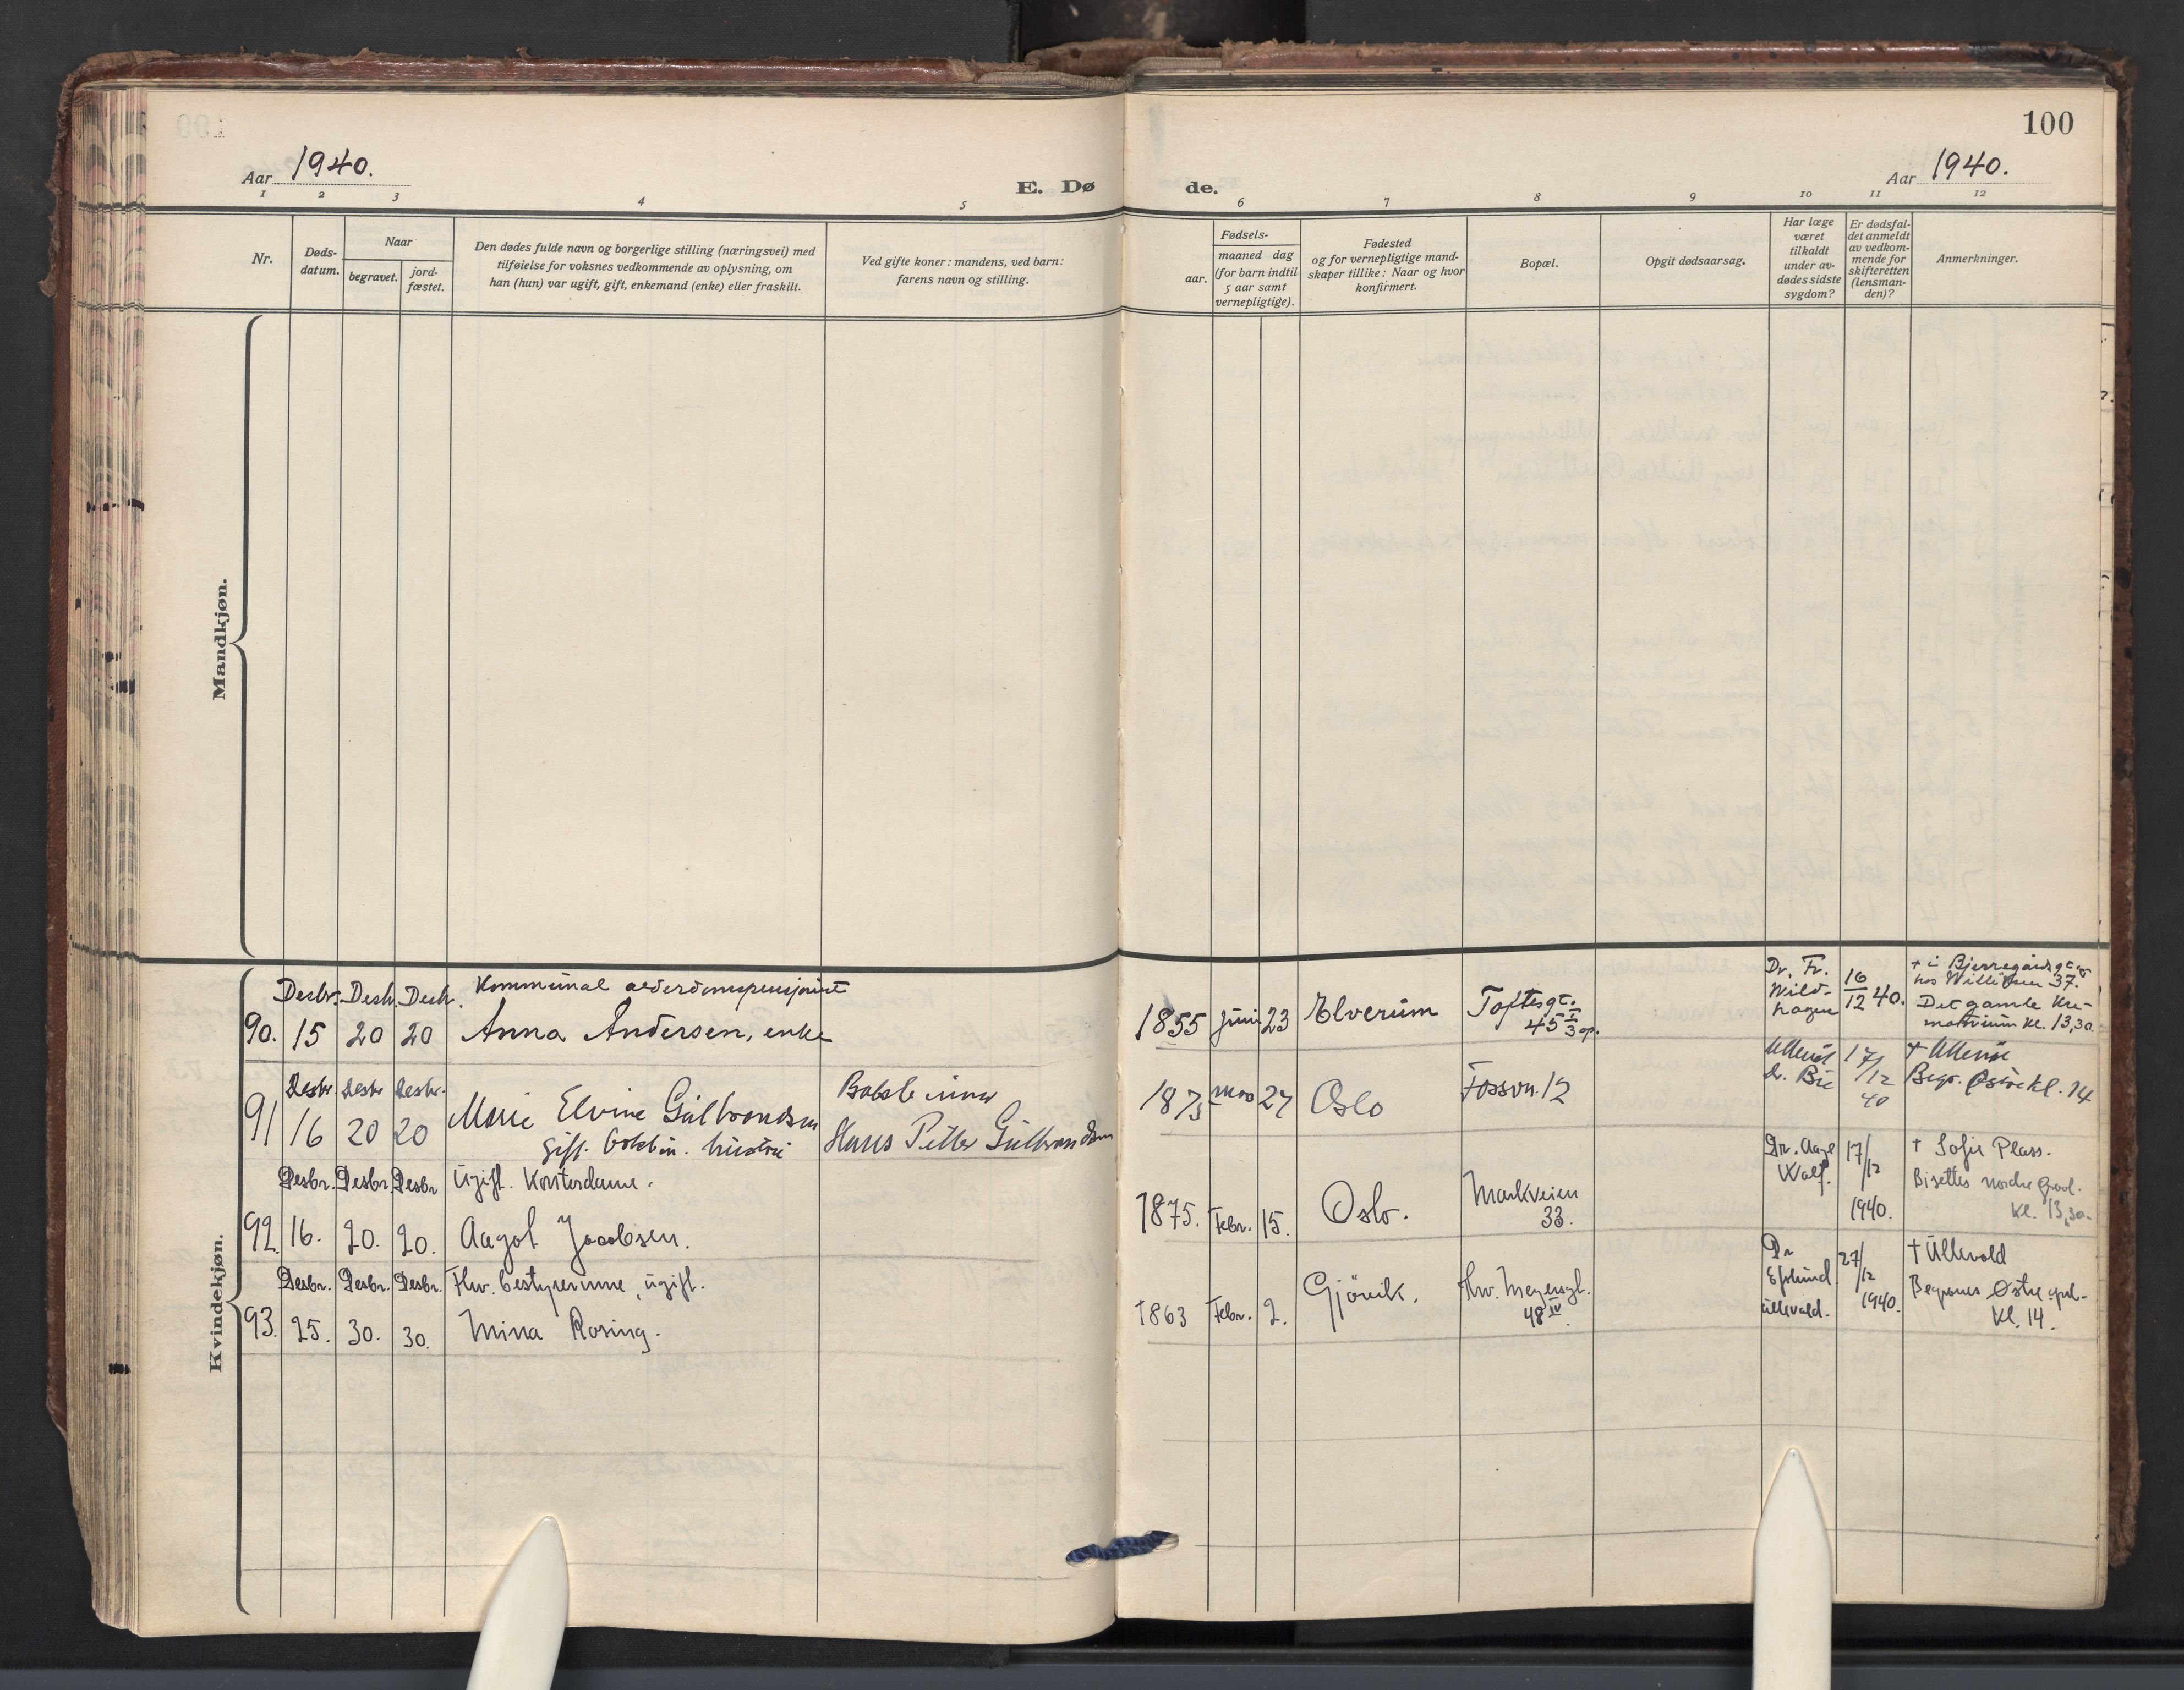 100
Aar 1940.
E. Dø de.
Aar 1940.
1 2 3 4 5 6 7 8 9 10 11 12
Nr.
Døds-
datum.
Naar
begravet.
jord-
fæstet.
Den dødes fulde navn og borgerlige stilling (næringsvei) med
tilføielse for voksnes vedkommende av oplysning, om
han (hun) var ugift, gift, enkemand (enke) eller fraskilt.
Ved gifte koner: mandens, ved barn:
farens navn og stilling.
Fødsels-
aar.
maaned dag
(for barn indtil
5 aar samt
vernepligtige).
Fødested
og for vernepligtige mand-
skaper tillike: Naar og hvor
konfirmert.
Bopæl.
Opgit dødsaarsag.
Har læge
været
tilkaldt
under av-
dødes sidste
sygdom?
Er dødsfal-
det anmeldt
av vedkom-
mende for
skifteretten
(lensman-
den)?
Anmerkninger.
Mandkjøn.
Kvindekjøn.
Desbr. Desbr. Desbr. Kommunal alderdomspensjonist
90. 15 20 20 Anna Andersen, enke
1855 Juni 23 Elverum
Toftesgt.
45 I 3 op.
Dr. Fr.
Wild-
hagen
16/12 40.
† i Bjerregårdsgt.
hos Willissen 37.
Det gamle kre-
matorium kl. 13,30.
Desbr Desbr Desbr.
91 16 20 20 Marie Elvine Gulbrandsen
gift. hustru
Hans Petter Gulbrandsen
1873 27 Oslo Fossvn. 12
Dr. Bie
17/12
40
† Ullevål
Begr. Østre kl. 14
Desbr. Desbr. Desbr ugift. Kontordame.
92. 16. 20. 20. Aagot Jacobsen.
1875. Febr. 15. Oslo.
Markveien
33.
Dr. Aage
Wulf.
17/12
1940.
† Sofie Plass.
Bisettes nordre gravl.
kl. 13,30.
Desbr. Desbr. Desbr. Fhv. bestyrerinne, ugift.
93. 25. 30. 30. Mina Rosing.
1863 Febr. 2. Gjövik.
Thv. Meyersgt.
48 IV.
Dr
Ullevold.
27/12
1940.
† Ullevold
Begraves Østre grl.
Kl. 14.